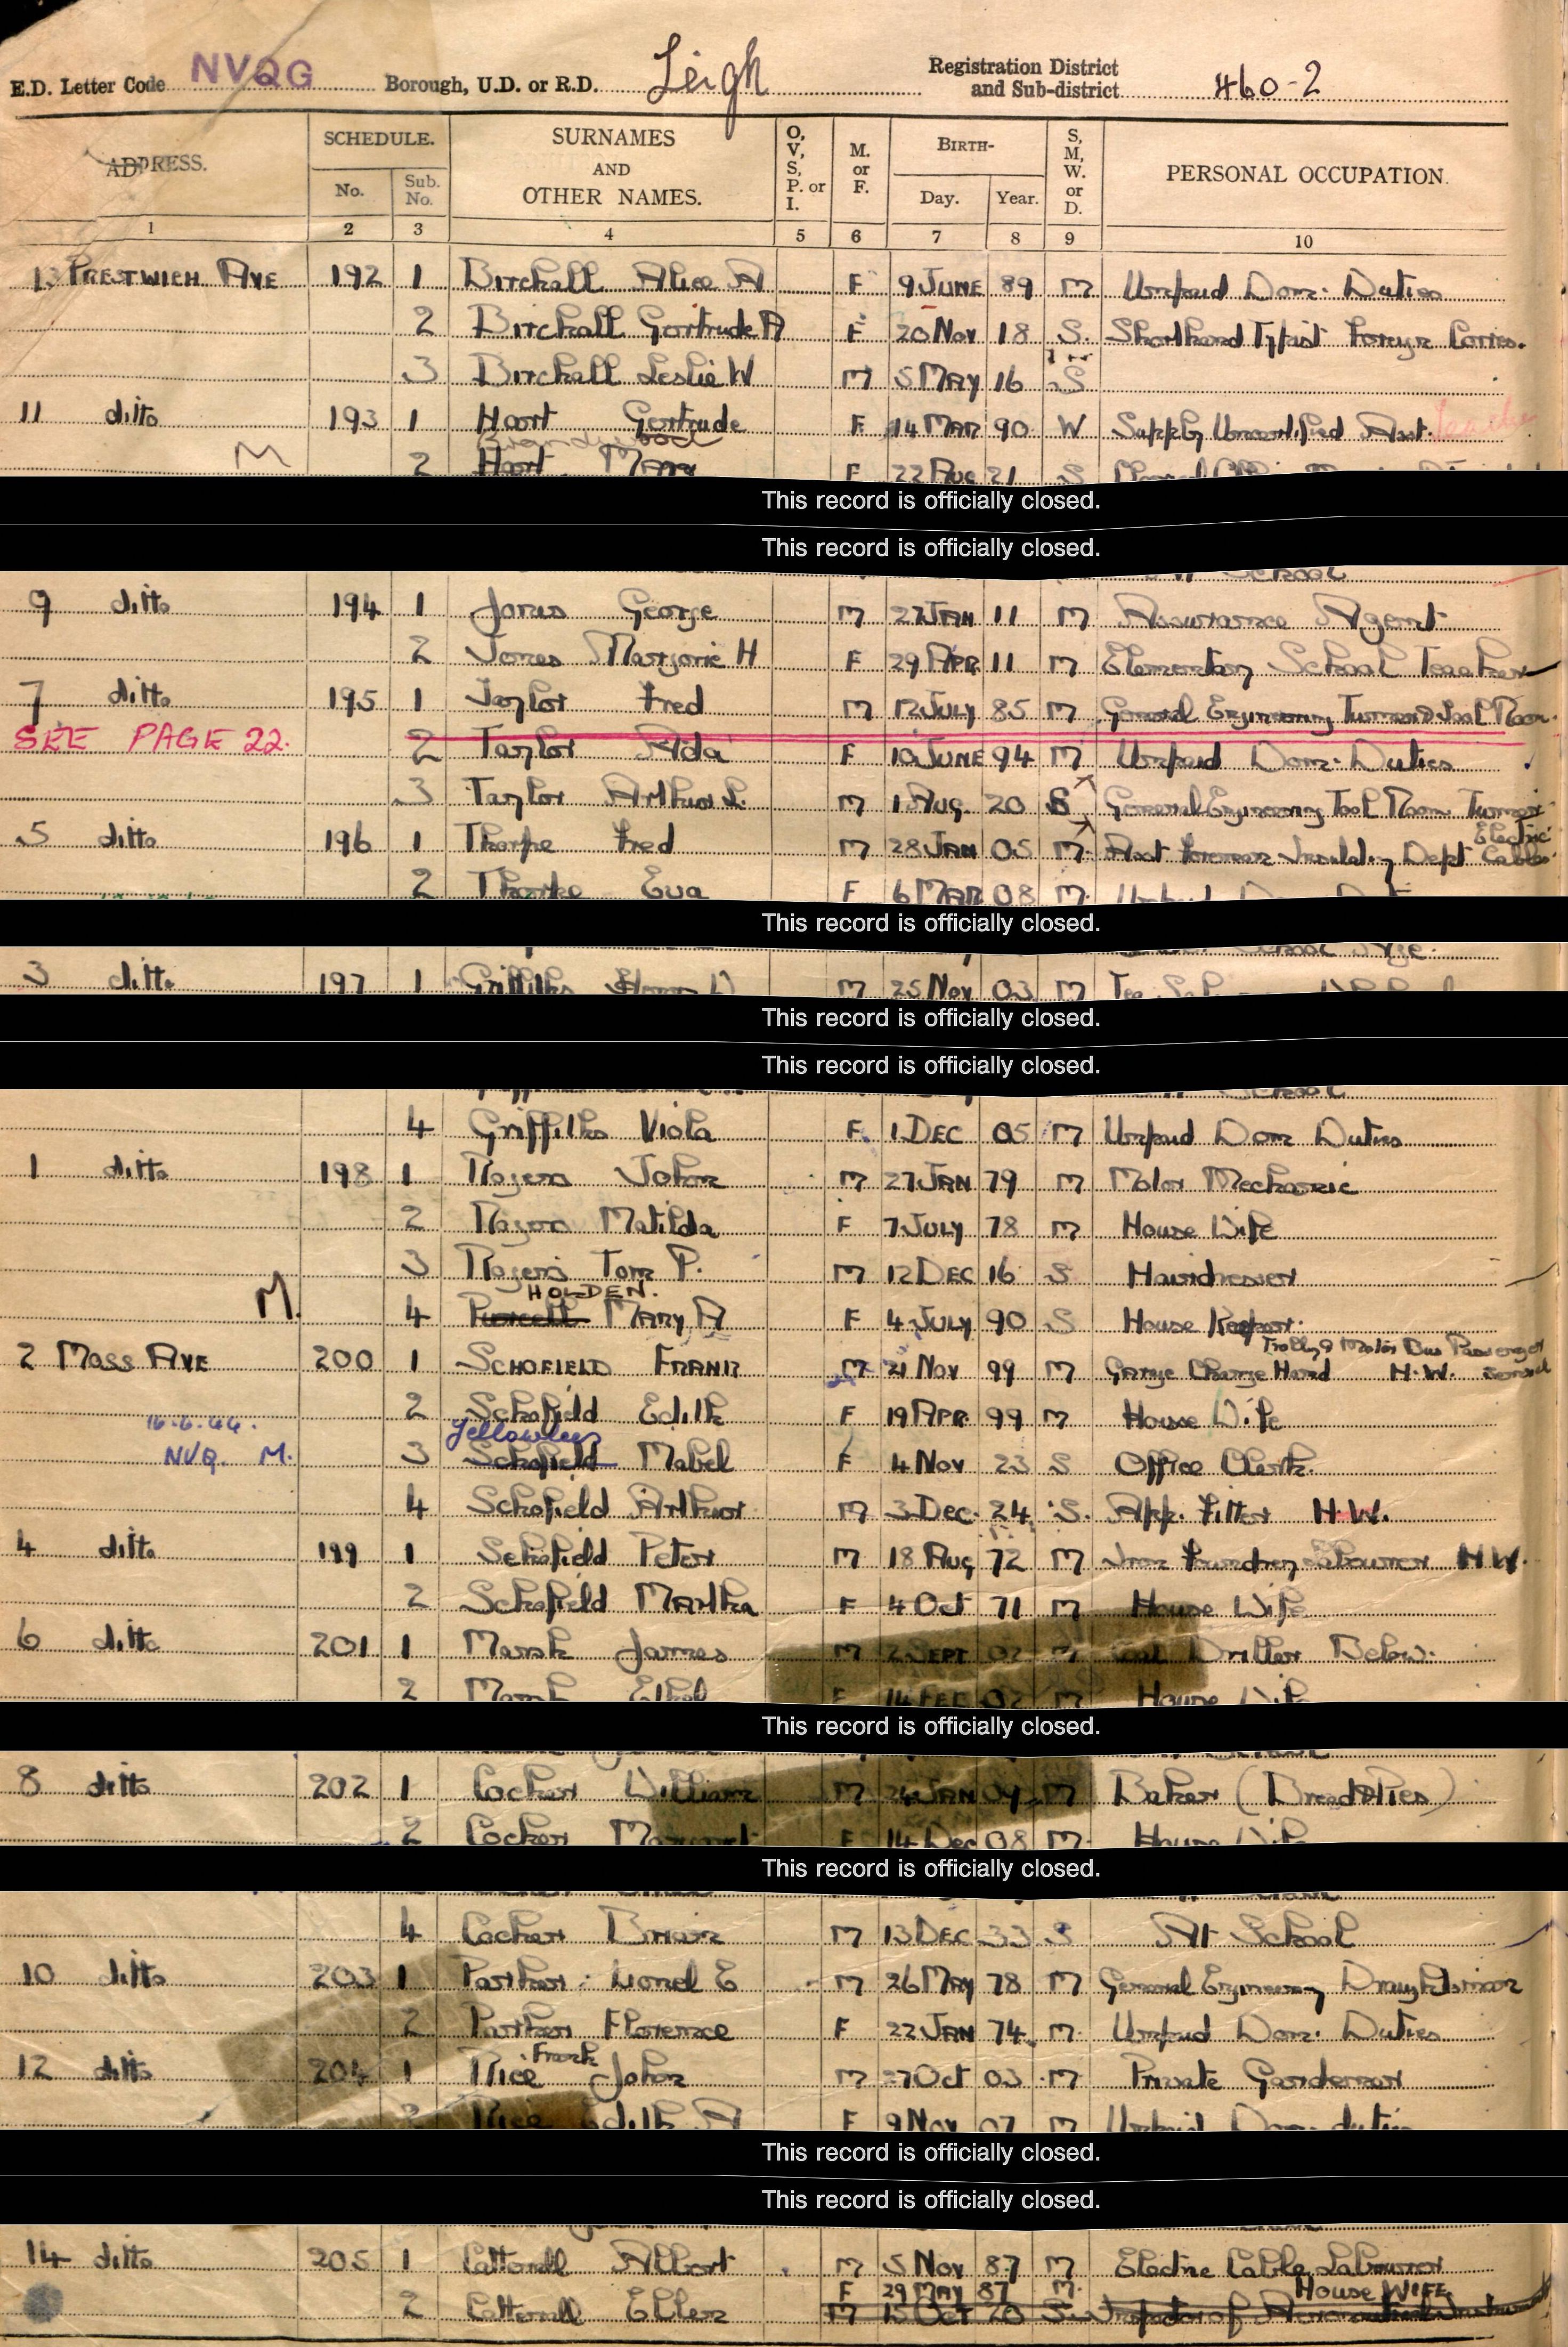 E.D. Letter Code NVQG Borough, U.D. or R.D. Leigh Registration District and Sub-district 460-2
ADDRESS. SCHEDULE. No. Sub. No. SURNAMES AND OTHER NAMES. O, V, S, P. or I. M. or F. BIRTH- Day. Year. S, M, W. or D. PERSONAL OCCUPATION.
1 2 3 4 5 6 7 8 9 10
13 PRESTWICH AVE 192 1 Birchall Alice A F 9 JUNE 89 M Unpaid Dom. Duties
2 Birchall Gertrude A F 20 Nov 18 S. Shorthand Typist Foreign Corres.
3 Birchall Leslie W M 5 MAY 16 S
11 ditto 193 1 Hart Gertrude F 14 MAR 90 W Supply Uncertified Asst. Teacher
M 2 Hart Mary F 22 AUG 21 S
This record is officially closed.
This record is officially closed.
School
9 ditto 194 1 Jones George M 27 JAN 11 M Assurance Agent
2 Jones Marjorie H F 29 APR 11 M Elementary School Teacher
7 ditto 195 1 Taylor Fred M 12 July 85 M General Engineering Turner Tool Room.
SEE PAGE 22. 2 Taylor Ada F 10 JUNE 94 M Unpaid Dom. Duties
3 Taylor Arthur L. M 1 Aug. 20 S General Engineering Tool Room Turner
5 ditto 196 1 Thorpe Fred M 28 JAN 05 M. Asst Foreman Insulating Dept Electric Cables
2 Thorpe Eva F 6 MAR 08 M. Unpaid
This record is officially closed.
3 ditto 197 1 Griffiths M 25 Nov 03 M
This record is officially closed.
This record is officially closed.
School
4 Griffiths Viola F. 1 DEC 05 M Unpaid Dom Duties
1 ditto 198 1 Rogers John M 27 JAN 79 M Motor Mechanic
2 Rogers Matilda F 7 JULY 78 M House Wife
3 Rogers Tom P. M 12 DEC 16 S Hairdresser
HOLDEN.
M. 4 Purcell MARY A F 4 JULY 90 S House Keeper.
Trolley & Motor Bus Passenger
2 MOSS AVE 200 1 SCHOFIELD FRANK M 21 Nov 99 M Garage Charge Hand H.W. Service
2 Schofield Edith F 19 APR 99 M House Wife
16.6.44. Yellowlees
NVQ. M. 3 Schofield Mabel F 4 Nov 23 S Office Clerk.
4 Schofield Arthur M 3 Dec. 24 S. App. Fitter H.W.
4 ditto 199 1 Schofield Peter M 18 Aug 72 M Iron Foundry Labourer H.W.
2 Schofield Martha F 4 Oct 71 M House Wife
6 ditto 201 1 Marsh James M 2 SEPT 02 M Coal Driller Below.
2 Marsh Ethel F 14 FEB 02 M House Wife
This record is officially closed.
8 ditto 202 1 Cocker William M 24 JAN 04 M Baker (Bread & Pies)
2 Cocker Margaret F 14 Dec 08 M. House Wife
This record is officially closed.
4 Cocker Brian M 13 DEC 33 S At School
10 ditto 203 1 Parker Lionel E M 26 MAY 78 M General Engineering Draughtsman
2 Parker Florence F 22 JAN 74 M. Unpaid Dom. Duties
Frank
12 ditto 204 1 Rice John M 27 Oct 03 M Private Gardener
2 Rice Edith A F 9 Nov 07 M Unpaid Dom. duties
This record is officially closed.
This record is officially closed.
14 ditto 205 1 Catterall Albert M 5 Nov 87 M Electric Cable Labourer
F 29 MAY 87 M. House WIFE
2 Catterall Ellen M 15 Oct 20 S. Inspector of